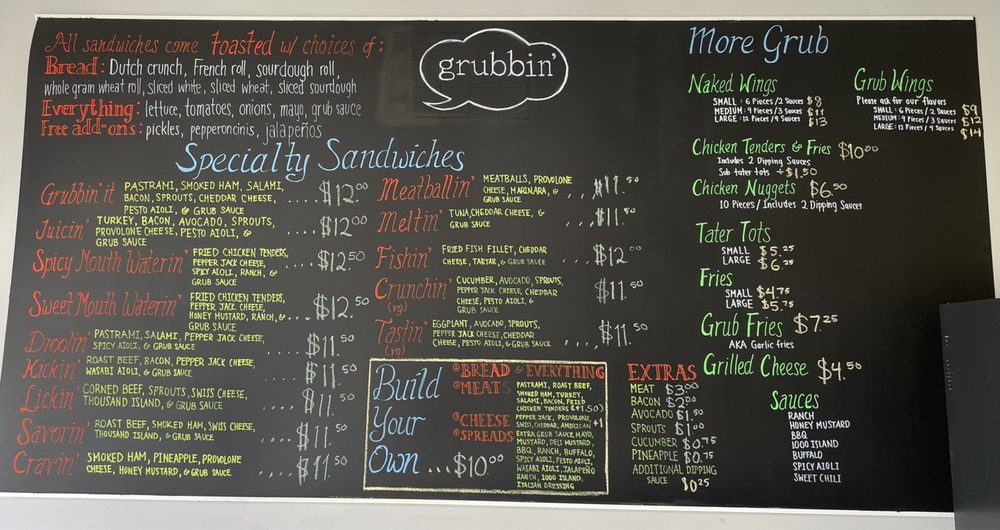 All sandwiches come toasted w/ choices of:
Bread: Dutch crunch, French roll, sourdough roll,
whole grain wheat roll, sliced white, sliced wheat, sliced sourdough
Everything: lettuce, tomatoes, onions, mayo, grub sauce
Free add-ons: pickles, pepperoncinis, jalapeños
grubbin'
Specialty Sandwiches
Grubbin' it PASTRAMI, SMOKED HAM, SALAMI,
BACON, SPROUTS, CHEDDAR CHEESE,
PESTO AIOLI, & GRUB SAUCE ....$12.00
Juicin' TURKEY, BACON, AVOCADO, SPROUTS,
PROVOLONE CHEESE, PESTO AIOLI, &
GRUB SAUCE ....$12.00
Spicy Mouth Waterin' FRIED CHICKEN TENDERS,
PEPPER JACK CHEESE,
SPICY AIOLI, RANCH, &
GRUB SAUCE ....$12.50
Sweet Mouth Waterin' FRIED CHICKEN TENDERS,
PEPPER JACK CHEESE,
HONEY MUSTARD, RANCH, &
GRUB SAUCE ...$12.50
Droolin' PASTRAMI, SALAMI, PEPPER JACK CHEESE,
SPICY AIOLI, & GRUB SAUCE ....$11.50
Kickin' ROAST BEEF, BACON, PEPPER JACK CHEESE,
WASABI AIOLI, & GRUB SAUCE ....$11.50
Lickin' CORNED BEEF, SPROUTS, SWISS CHEESE,
THOUSAND ISLAND, & GRUB SAUCE ....$11.50
Savorin' ROAST BEEF, SMOKED HAM, SWISS CHEESE,
THOUSAND ISLAND, & GRUB SAUCE ....$11.50
Cravin' SMOKED HAM, PINEAPPLE, PROVOLONE
CHEESE, HONEY MUSTARD, & GRUB SAUCE ....$11.50
Meatballin' MEATBALLS, PROVOLONE
CHEESE, MARINARA, &
GRUB SAUCE ....$11.50
Meltin' TUNA, CHEDDAR CHEESE, &
GRUB SAUCE ....$11.50
Fishin' FRIED FISH FILLET, CHEDDAR
CHEESE, TARTAR, & GRUB SAUCE ....$12.00
Crunchin' (vg) CUCUMBER, AVOCADO, SPROUTS,
PEPPER JACK CHEESE, CHEDDAR
CHEESE, PESTO AIOLI, &
GRUB SAUCE ....$11.50
Tastin' (vg) EGGPLANT, AVOCADO, SPROUTS,
PEPPER JACK CHEESE, CHEDDAR
CHEESE, PESTO AIOLI, & GRUB SAUCE ....$11.50
Build
Your
Own ...$10.00
BREAD & EVERYTHING
MEATS PASTRAMI, ROAST BEEF,
SMOKED HAM, TURKEY,
SALAMI, BACON, FRIED
CHICKEN TENDERS (+$1.50)
CHEESE PEPPER JACK, PROVOLONE
SWISS, CHEDDAR, AMERICAN +1
SPREADS EXTRA GRUB SAUCE, MAYO,
MUSTARD, DELI MUSTARD,
BBQ, RANCH, BUFFALO,
SPICY AIOLI, PESTO AIOLI,
WASABI AIOLI, JALAPENO
RANCH, 1000 ISLAND,
ITALIAN DRESSING
EXTRAS
MEAT $3.00
BACON $2.00
AVOCADO $1.50
SPROUTS $1.00
CUCUMBER $0.75
PINEAPPLE $0.75
ADDITIONAL DIPPING
SAUCE $0.25
More Grub
Naked Wings
SMALL: 6 Pieces/2 Sauces $8
MEDIUM: 9 Pieces/3 Sauces $11
LARGE: 12 Pieces/4 Sauces $13
Grub Wings
Please ask for our flavors
SMALL: 6 Pieces/2 Sauces $9
MEDIUM: 9 Pieces/3 Sauces $12
LARGE: 12 Pieces/4 Sauces $14
Chicken Tenders & Fries $10.00
Includes 2 Dipping Sauces
Sub tater tots +$1.50
Chicken Nuggets $6.50
10 Pieces/Includes 2 Dipping Sauces
Tater Tots
SMALL $5.25
LARGE $6.25
Fries
SMALL $4.75
LARGE $5.75
Grub Fries $7.25
AKA Garlic fries
Grilled Cheese $4.50
Sauces
RANCH
HONEY MUSTARD
BBQ
1000 ISLAND
BUFFALO
SPICY AIOLI
SWEET CHILI